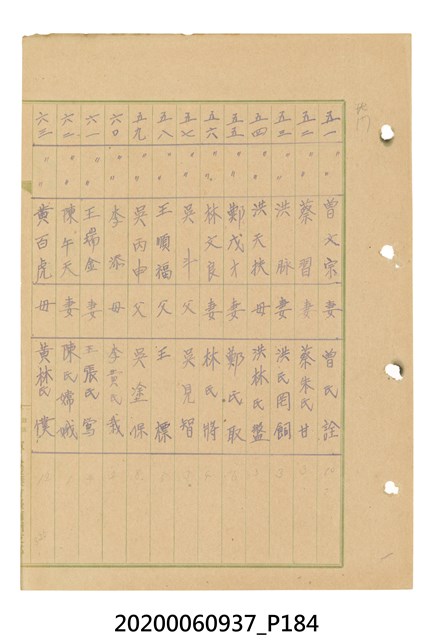 五一 〃 〃 曾文宗 妻 曾氏詮
五二 〃 〃 蔡習 妻 蔡朱氏甘
五三 〃 〃 洪脉 妻 洪氏罔飼
五四 〃 〃 洪天扶 母 洪林氏盤
五五 〃 〃 鄭戊才 妻 鄭氏取
五六 〃 〃 林文良 妻 林氏將
五七 〃 〃 吳斗 父 吳見智
五八 〃 〃 王順福 父 王標
五九 〃 〃 吳丙申 父 吳塗保
六〇 〃 〃 李添 母 李黃氏栽
六一 〃 〃 王瑞金 妻 王張氏鴛
六二 〃 〃 陳午天 妻 陳氏嫦娥
六三 〃 〃 黃百虎 母 黃林氏僕
20200060937_P184